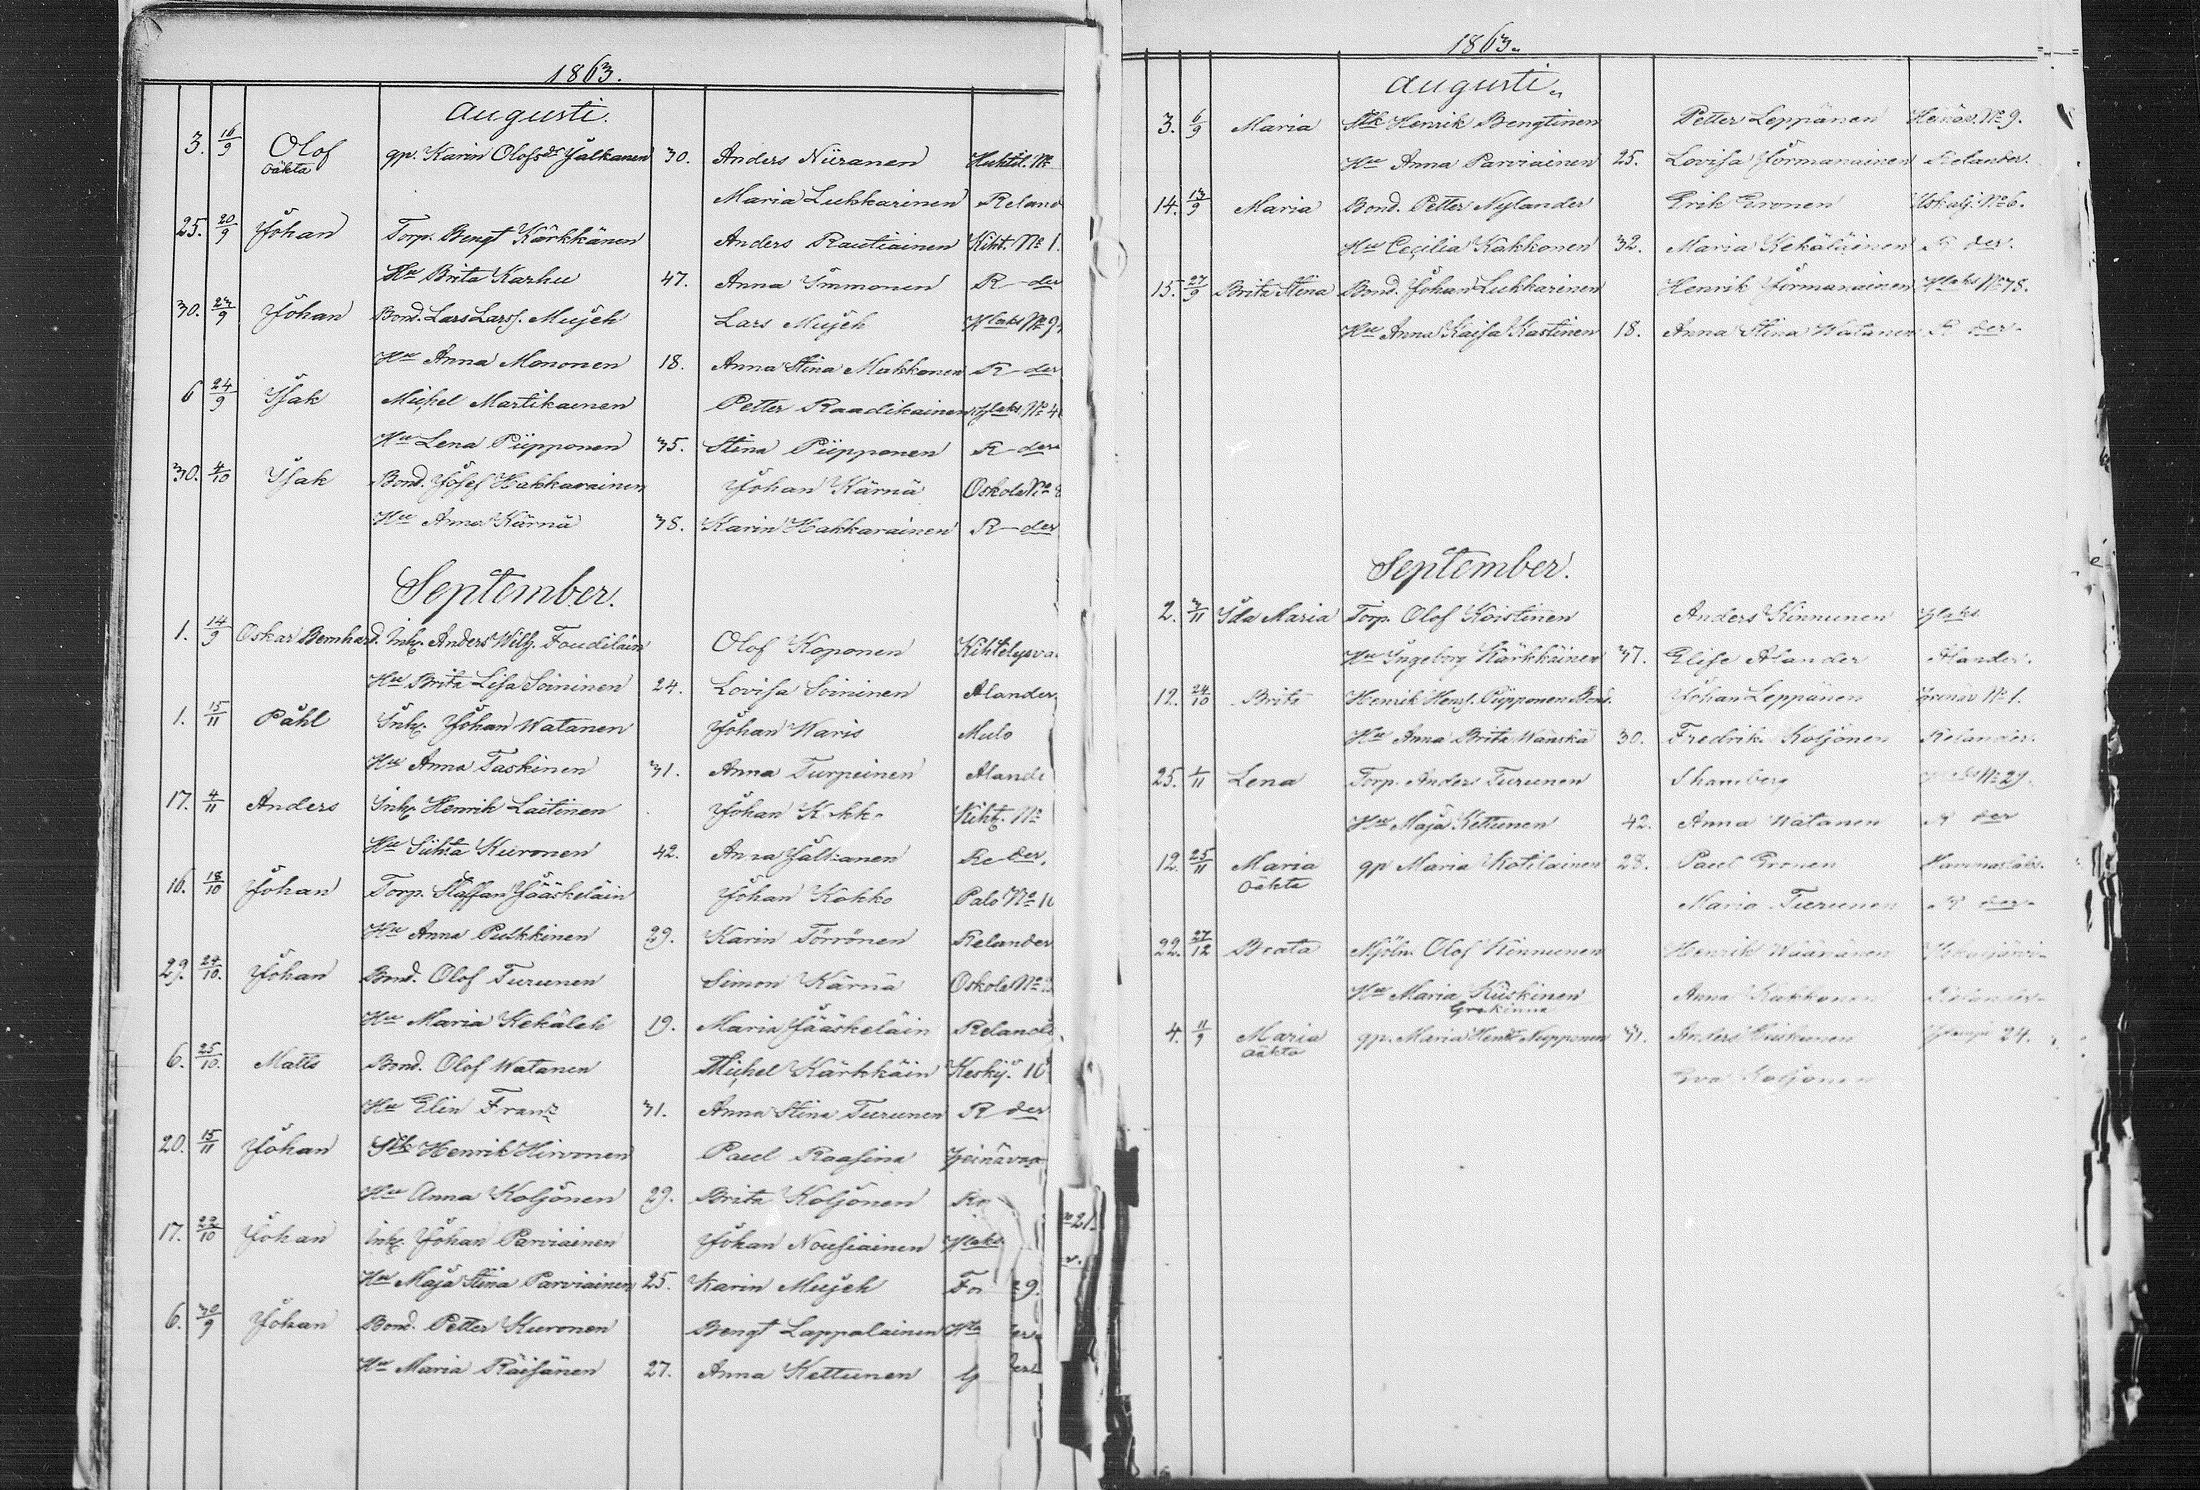 1863.
Augusti.
3. 16/9 Olof gp. Karin Olofsdr Jalkanen 30. Anders Niiranen Kihtel. No
oäkta
Maria Lukkarinen Reland
25. 20/9 Johan Torp. Bengt Kärkkänen Anders Rautiainen Kiht. No 1.
Hu Brita Karhu 47. Anna Immonen R der
30. 23/9 Johan Bond. Lars Larss. Mujeh Lars Mujeh Hlaks No 9
Hu Anna Mononen 18. Anna Stina Makkonen R der
6 24/9 Isak Michel Martikainen Petter Raadikainen Hlaks No 4
Hu Lena Piipponen 35. Stina Piipponen R der
30. 4/10 Isak Bond. Josef Hakkarainen Johan Kärnä Oskola No
Hu Anna Kärnä 38. Karin Hakkarainen R der
September.
1. 14/9 Oskar Bernhard. Inh. Anders Wilh. Foudiläin Olof Koponen Kihtelysva.
Hu Brita Lisa Soininen 24. Lovisa Soininen Alander.
1. 15/11 Påhl Inh. Johan Watanen Johan Waris Mulo
Hu Anna Taskinen 31. Anna Turpeinen Alande
17. 4/11 Anders Inh. Henrik Laitinen Johan Kiht. No
Hu Kuronen 42. Anna Jalkanen Re der.
16. 18/10 Johan Torp. Staffan Jääskeläin Johan Kokko Palo No 10
Hu Anna Pulkkinen 29. Karin Törrönen Relander
29. 24/10. Johan Bond. Olof Turunen Simon Kärnä Oskola No
Hu Maria Kekäleh 19. Maria Jääskeläin Relande
6. 25/10. Matts Bond. Olof Watanen Michel Kärkkäin Keskij. 10
Hu Elin Franz 31. Anna Stina Turunen R der
20. 15/11 Johan Henrik Hirvonen Paul Raasina Heinävaa
Hu Anna Koljonen 29. Brita Koljonen Re
17. 22/10 Johan Inh. Johan Parviainen Johan Nousiainen Hlaks
Hu Maja Stina Parviainen 25. Karin Mujeh Fo 9.
6. 30/9 Johan Bond. Petter Kuronen Bengt Lappalainen Hla
Hu Maria Räisänen 27. Anna Kettunen
21.
1863.
Augusti.
3. 6/9 Maria Henrik Bengtinen Petter Leppänen Heinäv. No 9.
Hu Anna Parviainen 25. Lovisa Jormanainen Relander.
14. 13/9 Maria Bond. Petter Nylander Erik Eronen Uskalj. No 6.
Hu Cecilia Kakkonen 32. Maria Kekäläinen R der.
15. 27/9 Brita Stina Bond. Johan Lukkarinen Henrik Jormanainen Hlaks No 78.
Hu Anna Kaisa Kastinen 18. Anna Stina Watanen R der.
September.
2. 3/11 Ida Maria Torp. Olof Koistinen Anders Kinnunen Hlaks
Hu Ingeborg Kärkkäinen 37. Elise Alander Alander.
12. 24/10 Brita Henrik Hens. Piipponen Bond. Johan Leppänen No 1.
Hu Anna Brita Wänskä 30. Fredrika Koljonen Relander.
25. 1/11 Lena Torp. Anders Turunen No 29.
Hu Maja Kettunen 42. Anna Watanen R der
12. 25/11 Maria gp Maria Kotilainen 28. Paul Eronen Hammaslaks.
oäkta
Maria Turunen R der.
22. 27/12 Beata Mjöln. Olof Kinnunen Henrik Wäänänen
Hu Maria Kiiskinen Anna Kakkonen Relander.
4. 11/9 Maria gp. Maria Nupponen 31. Anders 24.
oäkta
Eva Koljonen